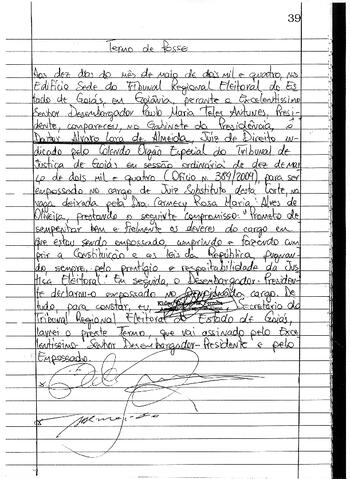 39
Termo de Posse
Aos dez dias do mês de maio de dois mil e quatro, no
Edifício Sede do Tribunal Regional Eleitoral do Es
tado de Goiás, em Goiânia, perante o Excelentíssimo
Senhor Desembargador Paulo Maria Teles Antunes, Presi-
dente, compareceu, no Gabinete da Presidência, o
Doutor Alvaro Lara de Almeida, Juiz de Direito in
dicado pelo Colendo Órgão Especial do Tribunal de
Justiça de Goiás em sessão ordinária de dez de mar
ço de dois mil e quatro (Ofício n. 389/2004), para ser
empossado no cargo de Juiz Substituto desta Corte, na
vaga deixada pela Dra. Carmecy Rosa Maria Alves de
Oliveira, prestando o seguinte compromisso: "Prometo de
sempenhar bem e fielmente os deveres do cargo em
que estou sendo empossado, cumprindo e fazendo cum
prir a Constituição e as leis da República, pugnan-
do, sempre, pelo prestígio e respeitabilidade da Jus
tiça Eleitoral". Em seguida, o Desembargador-Presiden-
te declarou-o empossado no cargo. De
tudo para constar, eu, Secretário do
Tribunal Regional Eleitoral do Estado de Goiás,
lavrei o preste Termo, que vai assinado pelo Exce
lentíssimo Senhor Desembargador-Presidente e pelo
Empossado.